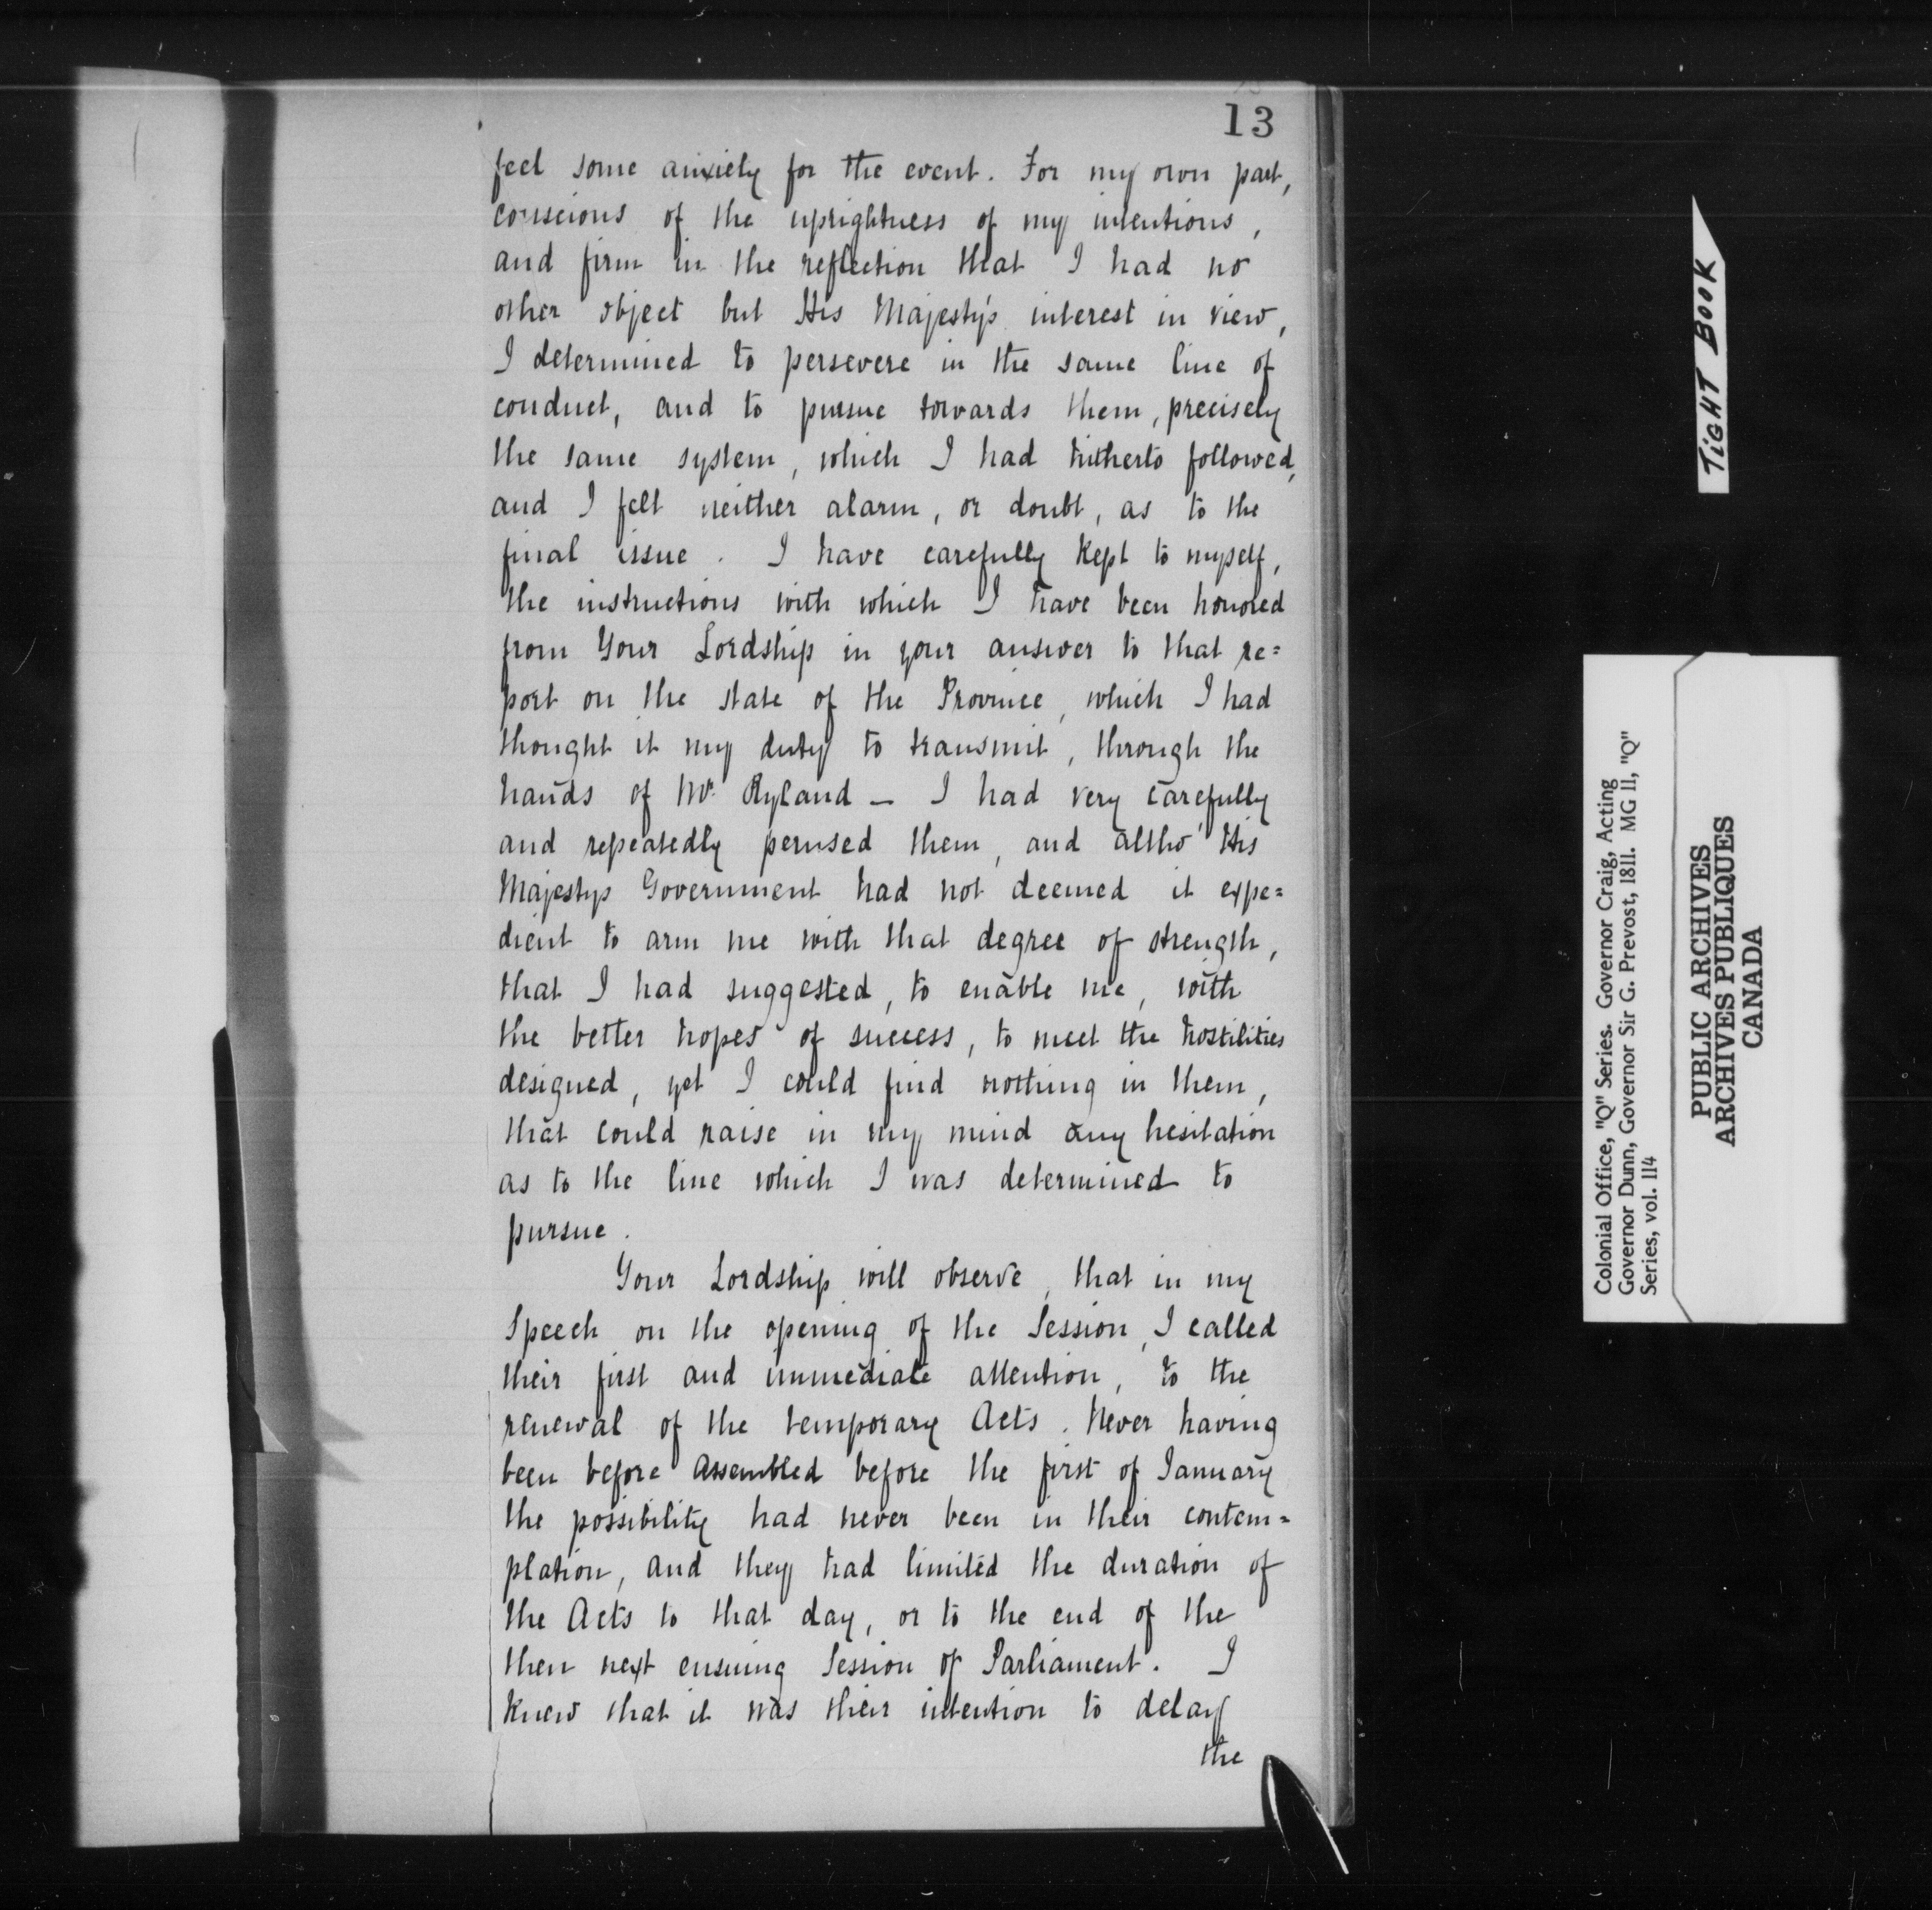 13
feel some anxiety for the event. For my own part,
conscious of the uprightness of my intentions,
and firm in the reflection that I had no
other object but His Majesty's interest in view,
I determined to persevere in the same line of
conduct, and to pursue towards them, precisely
the same system, which I had hitherto followed,
and I felt neither alarm, or doubt, as to the
final issue. I have carefully kept to myself,
the instructions with which I have been honored
from Your Lordship in your answer to that re=
port on the state of the Province, which I had
thought it my duty to transmit, through the
hands of Mr. Ryland — I had very carefully
and repeatedly perused them, and altho' His
Majestys Government had not deemed it expe=
dient to arm me with that degree of strength,
that I had suggested, to enable me, with
the better hopes of success, to meet the hostilities
designed, yet I could find nothing in them,
that could raise in my mind any hesitation
as to the line which I was determined to
pursue.
Your Lordship will observe, that in my
Speech on the opening of the Session, I called
their first and immediate attention, to the
renewal of the temporary Acts. Never having
been before assembled before the first of January
the possibility had never been in their contem=
plation, and they had limited the duration of
the Acts to that day, or to the end of the
then next ensuing Session of Parliament. I
knew that it was their intention to delay
the
TIGHT BOOK
Colonial Office, "Q" Series. Governor Craig, Acting
Governor Dunn, Governor Sir G. Prevost, 1811. MG 11, "Q"
Series, vol. 114
PUBLIC ARCHIVES
ARCHIVES PUBLIQUES
CANADA